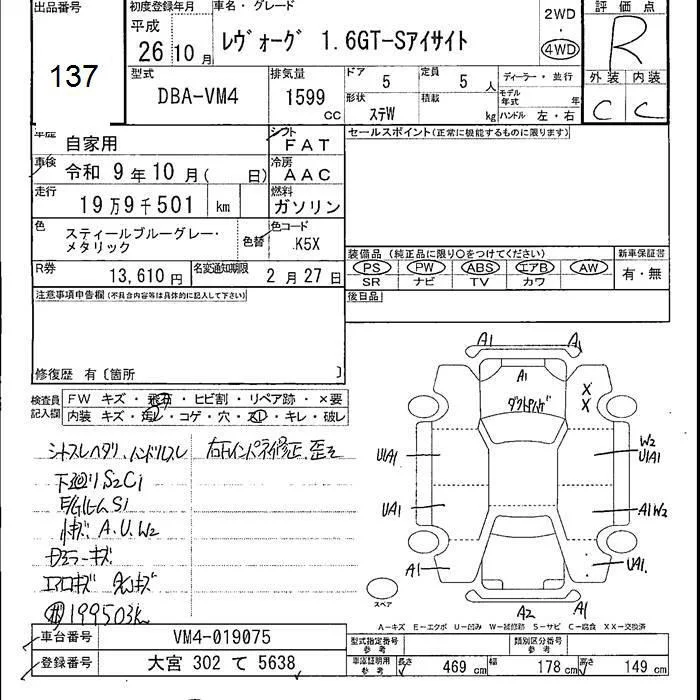 出品番号
137
初度登録年月
平成
26 10 月
車名・グレード
ﾚｳﾞｫｰｸﾞ 1.6GT-Sｱｲｻｲﾄ
2WD
・
4WD
評価点
R
外装 内装
C C
型式
DBA-VM4
排気量
1599
CC
ドア
5
定員
5 人
形状
ｽﾃW
積載
kg
ディーラー・並行
モデル年式 年
ハンドル 左・右
車歴 自家用
シフト
FAT
セールスポイント(正常に機能するものに限ります)
車検 令和 9年10月( 日)
冷房
AAC
走行
19万9千501 km
燃料
ガソリン
色
スティールブルーグレー・
メタリック
色替
色コード
K5X
装備品(純正品に限り○をつけてください)
PS PW ABS エアB AW
SR ナビ TV カワ
新車保証書
有・無
R券
13,610 円
名変通知期限
2月27日
後日品
注意事項申告欄(不具合内容等は具体的に記入して下さい)
修復歴 有〔箇所 〕
検査員
記入欄
FW キズ・飛石・ヒビ割・リペア跡・×要
内装 キズ・汚レ・コゲ・穴・スレ・キレ・破レ
シートスレヘタリ、ハンドルスレ
右Fインパネ修正、歪ミ
下廻りS2C1
S1
小キズ A.U.W2
ドアミラーキズ
エアロキズ
199503K
A1 A1
A1
ダクトサビ
X
X
U1A1
W2
U1A1
UA1
A1W2
A1
UA1.
A2 A1
スペア
A−キズ E−エクボ U−凹み W−補修跡 S−サビ C−腐食 XX−交換済
車台番号 VM4-019075
登録番号 大宮 302 て 5638
型式指定番号
参考
類別区分番号
参考
車庫証明用
参考
長さ 469 cm 幅 178 cm 高さ 149 cm